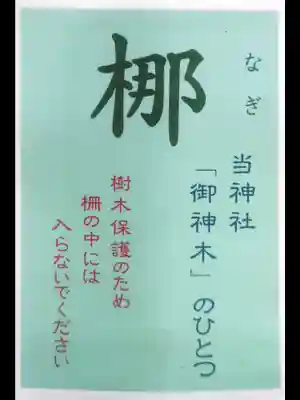 なぎ
梛
当神社
「御神木」のひとつ
樹木保護のため
柵の中には
入らないでください